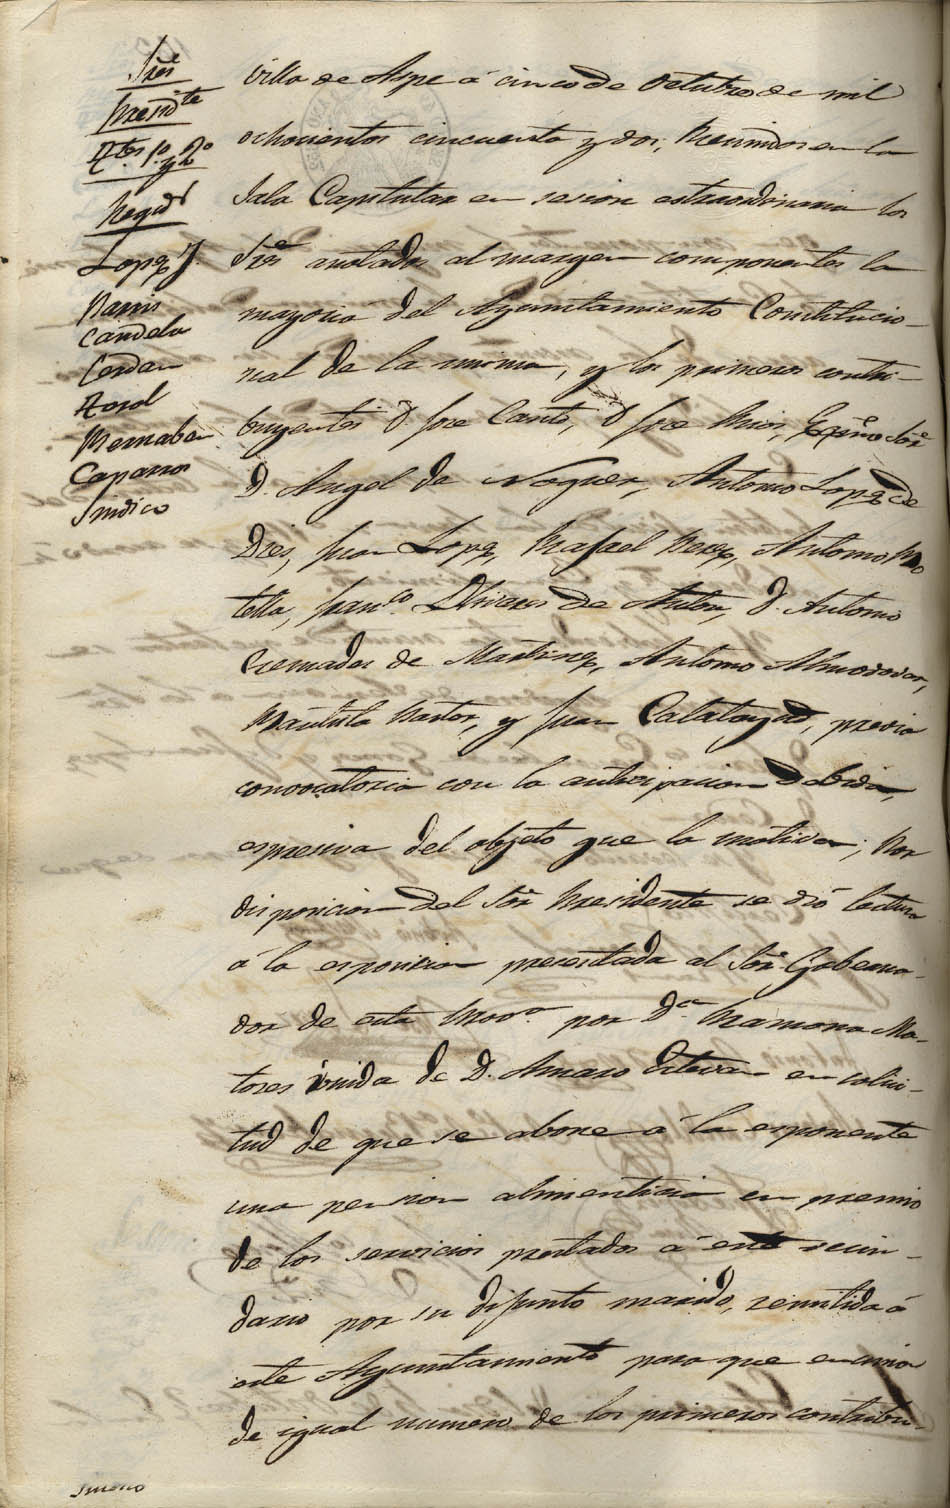 Sres
Presidte
Ttes 1º y 2º
Regids
Lopez J.
Pavis
Candela
Cerdan
Asol
Bernabeu
Caparros
Sindico
Villa de Aspe á cinco de Octubre de mil
ochocientos cincuenta y dos; Reunidos en la
Sala Capitular en sesion estraordinaria los
Sres anotados al margen componentes la
mayoria del Ayuntamiento Constitucio-
nal de la misma, y los primeros contri-
buyentes D. Jose Canto, D Jose Mira, Exmo Sor
D. Angel de Noguer, Antonio Lopez de
Dies, Juan Lopez, Rafael Perez, Antonio Bo
tella, Franco Olivares de Anton, D. Antonio
Cremades de Martinez, Antonio Almodovar,
Bautista Pastor, y Juan Calatayud, previa
convocatoria con la anticipacion debida,
espresiva del objeto que la motiva; Por
disposicion del Sor Presidente se dió lectura
á la esposicion presentada al Sor Goberna-
dor de esta Prova por Da Ramona Ma-
tores viuda de D. Amaro Estevan en solici-
tud de que se abone á la esponente
una pension alimenticia en premio
de los servicios prestados á este vecin-
dario por su difunto marido, remitida á
este Ayuntamiento para que en union
de igual numero de los primeros contribu-